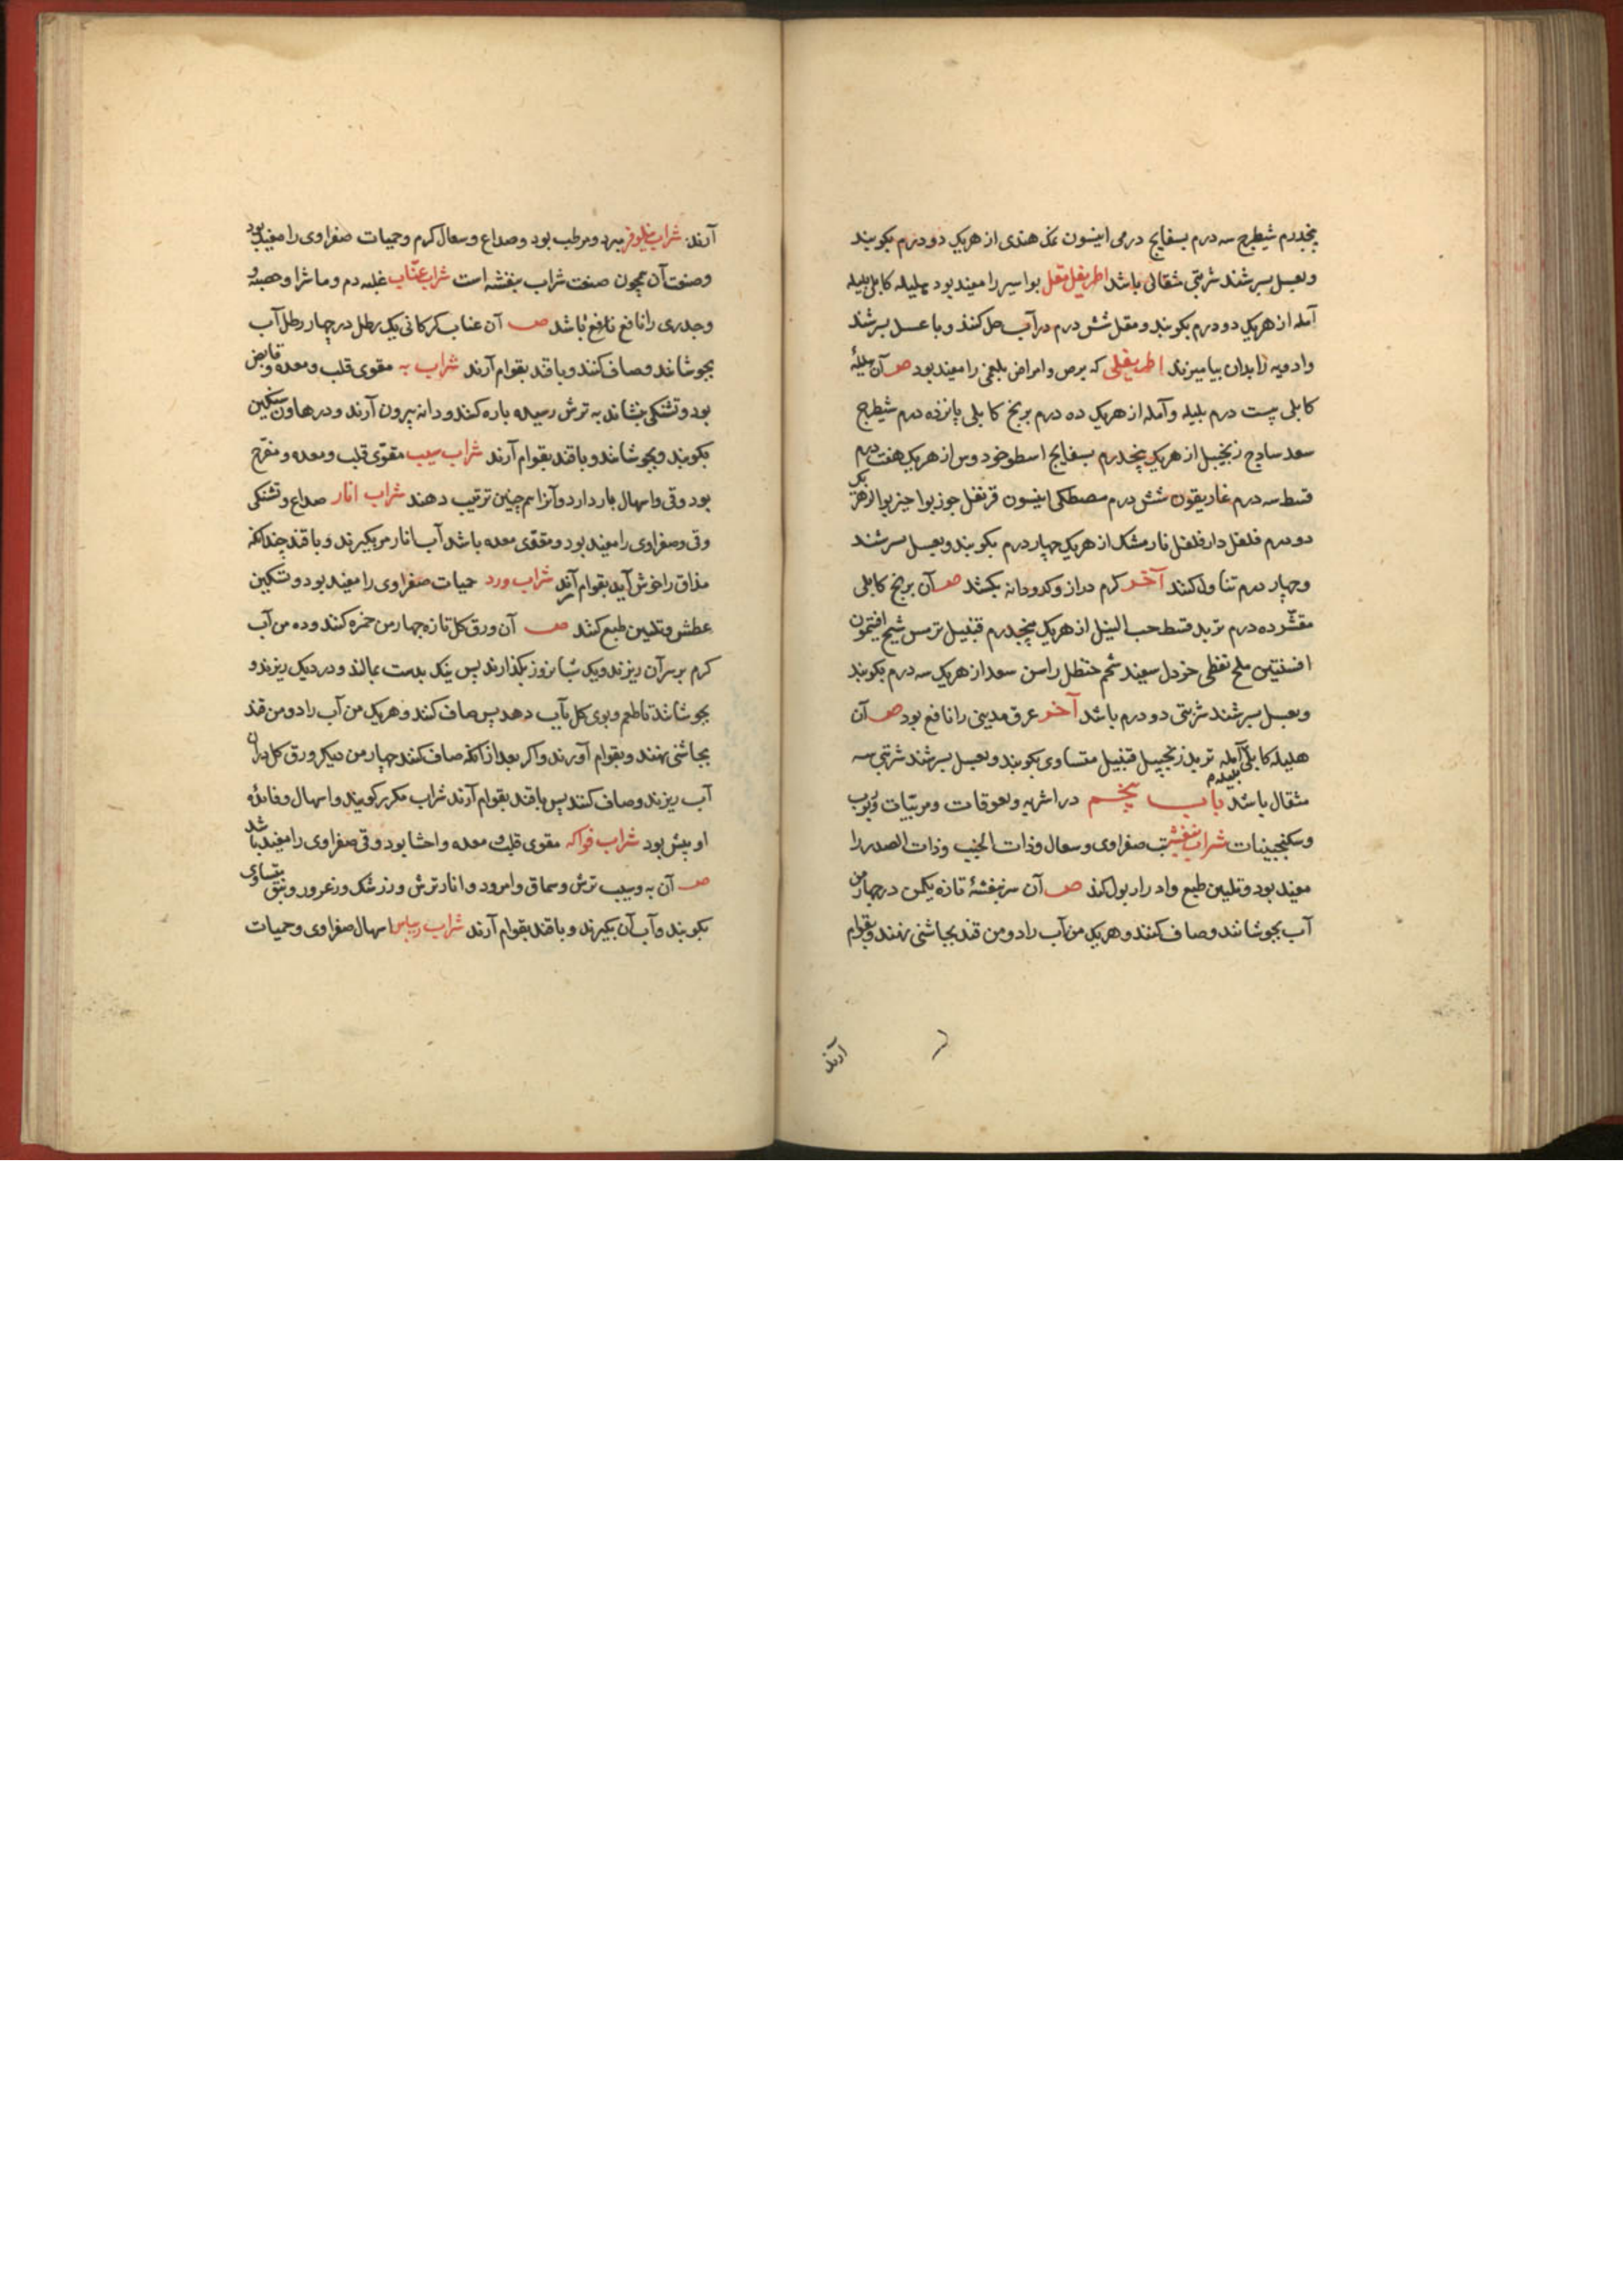 پنجدرم شیطرج سه درم بسفایج درمی انیسون نمک هندی از هریک دو درم بکوبند
وبعسل بسرشند شربتی مثقالی باشد اطریفل مقل بواسیر را مفید بود هلیله کابلی بلیله
آمله از هریک دو درم بکوبند و مقل شش درم در آب حل کنند و با عسل بسرشند
وادویه را بدان بیامیزند اطریفلی که برص وامراض بلغمی را مفید بود صـ آن هلیلهٔ
کابلی بیست درم بلیله وآمله از هریک ده درم برنج کابلی پانزده درم شیطرج
سعد سادج زنجبیل از هریک پنجدرم بسفایج اسطوخودوس از هریک هفت درم
قسط سه درم غاریقون شش درم مصطکی انیسون قرنفل جوزبوا خیربوا از هریک
دو درم فلفل دارفلفل نارمشک از هریک چهار درم بکوبند وبعسل بسرشند
وچهار درم تناول کنند آخر کرم دراز وکدودانه بکشد صـ آن برنج کابلی
مقشّر ده درم تربد قسط حب النیل از هریک پنجدرم قنبیل ترمس شیح افتیمون
افسنتین ملح نفطی خردل سفید شحم حنظل راسن سعد از هریک سه درم بکوبند
وبعسل بسرشند شربتی دو درم باشد آخر عرق مدینی را نافع بود صـ آن
هلیله کابلی آمله بلیله تربد زنجبیل قنبیل متساوی بکوبند وبعسل بسرشند شربتی سه
مثقال باشد باب پنجم در اشربه ولعوقات ومربّیات وربوب
وسکنجبینات شراب بنفشه تب صفراوی وسعال وذات الجنب وذات الصدر را
مفید بود وتلیین طبع وادرار بول کند صـ آن سر بنفشهٔ تازه یکمن در چهار من
آب بجوشانند وصاف کنند وهر یک من آب را دو من قند بجاشنی نهند وبقوام
آرند
آرند شراب نیلوفر مبرد ومرطب بود وصداع وسعال کرم وحمیات صفراوی را مفید بود
وصفت آن همچون صفت شراب بنفشه است شراب عنّاب غلبه دم وماشرا وحصبه
وجدری را نافع نافع باشد صـ آن عناب کرکانی یک رطل در چهار رطل آب
بجوشانند وصاف کنند وبا قند بقوام آرند شراب به مقوی قلب ومعده وقابض
بود وتشنکی بنشاند به ترش رسیده پاره کنند ودانه بیرون آرند ودر هاون سنکین
بکوبند وبجوشانند وبا قند بقوام آرند شراب سیب مقوّی قلب ومعده ومفرّح
بود وقی واسهال باز دارد وآنرا همچنین ترتیب دهند شراب انار صداع وتشنکی
وقی وصفراوی را مفید بود ومقوّی معده باشد آب انار مز بکیرند وبا قند چندانکه
مذاق را خوش آید بقوام آرند شراب ورد حمیات صفراوی را مفید بود وتسکین
عطش وتلیین طبع کند صـ آن ورق کل تازه چهار من خمره کنند وده من آب
کرم بر سر آن ریزند ویک شبانروز بکذارند پس نیک بدست بمالند ودر دیک ریزند و
بجوشانند تا طعم وبوی کل بآب دهد پس صاف کنند وهر یک من آب را دو من قند
بجاشنی نهند وبقوام آورند واکر بعد از آنکه صاف کنند چهار من دیکر ورق کل در آن
آب ریزند وصاف کنند پس با قند بقوام آرند شراب مکرر کویند واسهال وفائدهٔ
او بیش بود شراب فواکه مقوی قلب ومعده واحشا بود وقی صفراوی را مفید باشد
صـ آن به وسیب ترش وسماق وامرود وانار ترش وزرشک وزعرور ونبق متساوی
بکوبند وآب آن بکیرند وبا قند بقوام آرند شراب ریباس اسهال صفراوی وحمیات